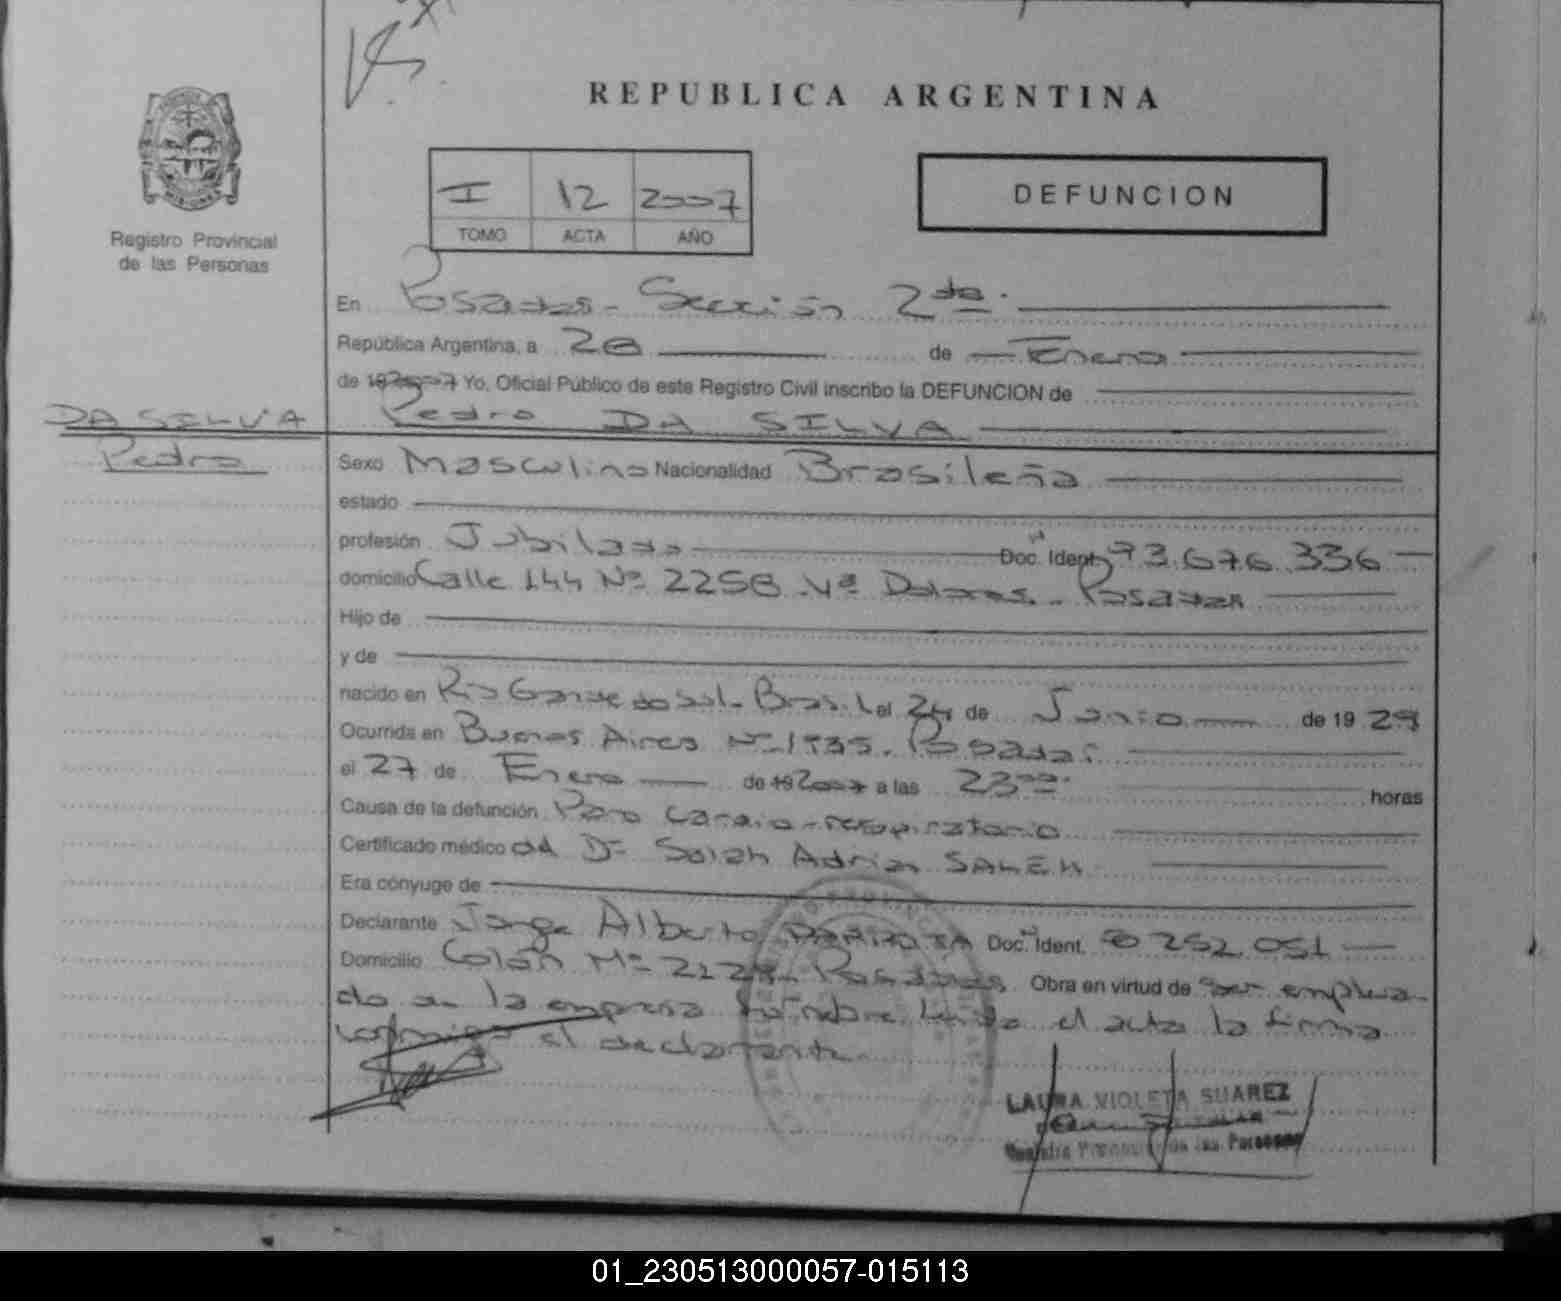 REPUBLICA ARGENTINA
I 12 2007
TOMO ACTA AÑO
DEFUNCION
Registro Provincial
de las Personas
En Posadas - Sección 2da.
República Argentina, a 28 de Enero
de 2007 Yo, Oficial Público de este Registro Civil inscribo la DEFUNCION de
DA SILVA
Pedro
Pedro DA SILVA
Sexo Masculino Nacionalidad Brasileña
estado
profesión Jubilado Doc. Ident. 93.676.336
domicilio Calle 144 Nº 2258 - Vª Dolores - Posadas
Hijo de
y de
nacido en Rio Grande do Sul - Brasil el 24 de Junio de 1929
Ocurrida en Buenos Aires Nº 1935 - Posadas
el 27 de Enero de 2007 a las 23 horas
Causa de la defunción Paro cardio-respiratorio
Certificado médico Dr Adrian SALEH
Era cónyuge de
Declarante Jorge Alberto Doc. Ident. 252.051
Domicilio Colón Nº Posadas Obra en virtud de ser emplea-
do de la empresa fúnebre. Leida el acta la firma
conmigo el declarante.
LAURA VIOLETA SUAREZ
Registro Provincial de las Personas
01_230513000057-015113